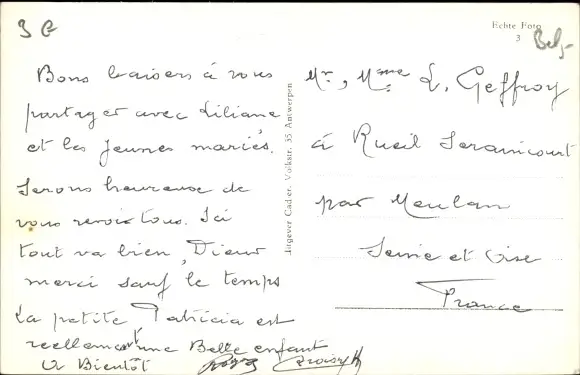 3 G
Echte Foto
3
Belg.
Bons baisers à vous
partager avec Liliane,
et les jeunes mariés.
Serons heureuse de
vous revoir tous. Ici
tout va bien, Dieur
merci sauf le temps
La petite Patricia est
reellement une Belle enfant
A Bientôt
Uitgever Cadier, Volkstr. 35 Antwerpen
Mr, Mme L. Geffroy
à Rueil Seraincourt
par Meulan
Seine et Oise
France